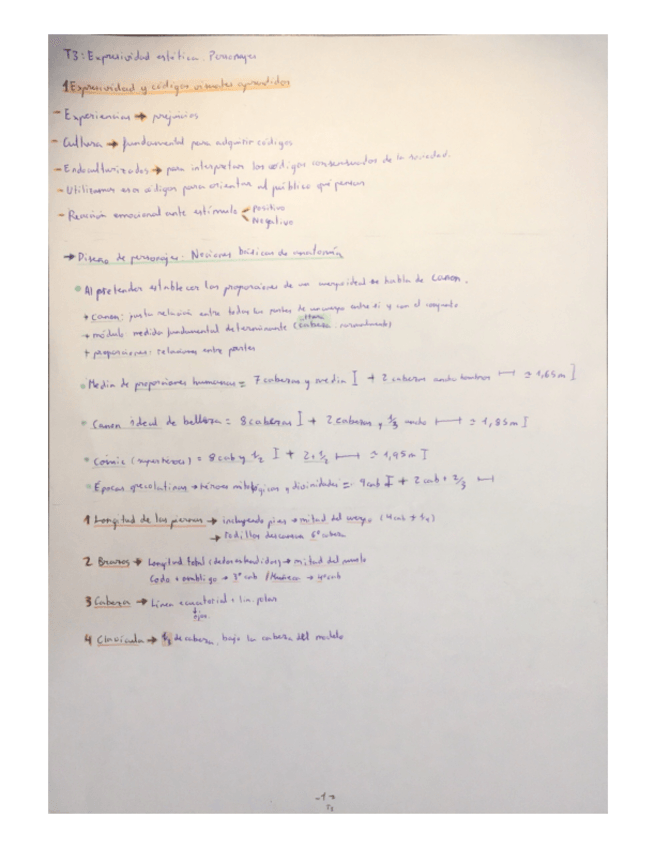 T3: Expresividad estática. Personajes
1 Expresividad y códigos visuales aprendidos
- Experiencias → prejuicios
- Cultura → fundamental para adquirir códigos
- Endoculturizados → para interpretar los códigos consensuados de la sociedad.
- Utilizamos esos códigos para orientar al público qué pensar
- Reacción emocional ante estímulo < Positivo
Negativo
→ Diseño de personajes. Nociones básicas de anatomía
Al pretender establecer las proporciones de un cuerpo ideal se habla de canon.
+ canon: justa relación entre todas las partes de un cuerpo entre sí y con el conjunto
altura
→ módulo: medida fundamental determinante (cabeza normalmente)
+ proporciones: relaciones entre partes
Media de proporciones humanas = 7 cabezas y media I + 2 cabezas ancho hombros ⊢⊣ = 1,65m I
Canon ideal de belleza = 8 cabezas I + 2 cabezas y 1/3 ancho ⊢⊣ = 1,85m I
Cómic (superhéroes) = 8 cab y 1/2 I + 2 y 1/2 ⊢⊣ = 1,95m I
Épocas grecolatinas → héroes mitológicos y divinidades = 9 cab I + 2 cab + 2/3 ⊢⊣
1 Longitud de las piernas → incluyendo pies → mitad del cuerpo (4 cab + 1/4)
→ rodillas descansan 6ª cabeza
2 Brazos → Longitud total (dedos extendidos) → mitad del muslo
Codo + ombligo → 3ª cab / Muñeca → 4ª cab
3 Cabeza → Línea ecuatorial + lin. polar
ojos
4 Clavícula → 1/3 de cabeza, bajo la cabeza del modelo
-1-
T3